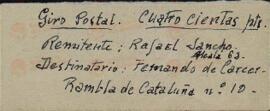 Giro Postal. Cuatro cientas pts.
Remitente; Rafael Sancho.
Alcalá 63.
Destinatario; Fernando de Carcer-
Rambla de Cataluña nº 10-